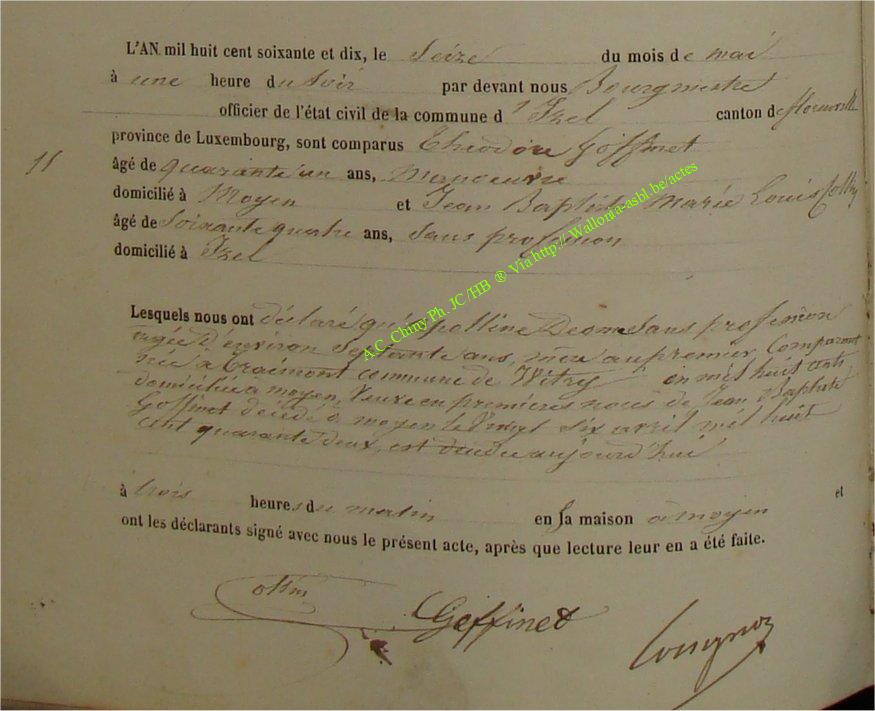 L'AN mil huit cent soixante et dix, le Seize du mois de mai
à une heure du soir par devant nous Bourgmestre
officier de l'état civil de la commune d'Izel canton de florenville
province de Luxembourg, sont comparus Théodore Goffinet
11
âgé de quarante un ans, manoeuvre
domicilié à Moyen et Jean Baptiste Marie Louis
âgé de soixante quatre ans, sans profession
domicilié à Izel
Lesquels nous ont déclaré qu'apolline Deom sans profession
agée d'environ septante ans, mère au premier Comparant
née à Traimont commune de Witry en mil huit cent
domiciliée à moyen, Veuve en premières noces de Jean Baptiste
Goffinet décédé à moyen le vingt six avril mil huit
cent quarante deux, est décédée aujourd'hui
à trois heures du matin en sa maison à moyen et
ont les déclarants signé avec nous le présent acte, après que lecture leur en a été faite.
Goffinet
A.C. Chiny Ph. JC /HB ® Via http:// Wallonia-asbl.be/actes